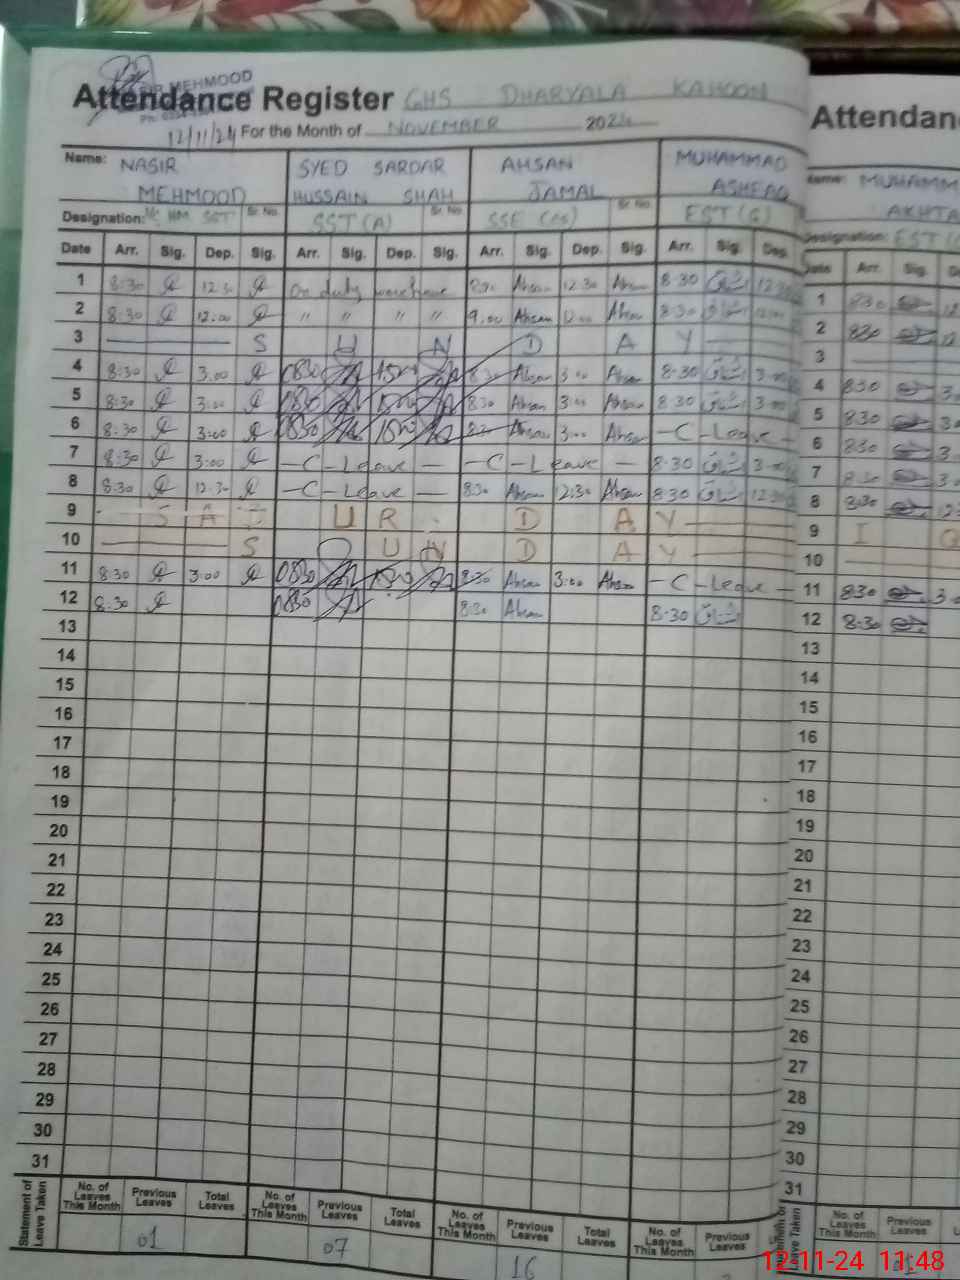 NASIR MEHMOOD
Attendance Register GHS DHARYALA KAHOON
12/11/24 For the Month of NOVEMBER 2024
Name: NASIR MEHMOOD SYED SARDAR HUSSAIN SHAH AHSAN JAMAL MUHAMMAD ASHFAQ
Designation: HM SST Sr. No. SST(A) Sr. No. SSE (CS) Sr. No. EST(G)
Date Arr. Sig. Dep. Sig. Arr. Sig. Dep. Sig. Arr. Sig. Dep. Sig. Arr. Sig. Dep.
1 8:30 12:30 On duty 8:30 Ahsan 12:30 Ahsan 8:30 اشفاق 12:30
2 8:30 12:00 " " " " 9:00 Ahsan 12:00 Ahsan 8:30 اشفاق 12:00
3 S U N D A Y
4 8:30 3:00 0830 1500 8:30 Ahsan 3:00 Ahsan 8:30 اشفاق 3:00
5 8:30 3:00 0830 1500 8:30 Ahsan 3:00 Ahsan 8:30 اشفاق 3:00
6 8:30 3:00 0830 1500 8:30 Ahsan 3:00 Ahsan - C - Leave -
7 8:30 3:00 - C - Leave - - C - Leave - 8:30 اشفاق 3:00
8 8:30 12:30 - C - Leave - 8:30 Ahsan 12:30 Ahsan 8:30 اشفاق 12:30
9 U R D A Y
10 S U N D A Y
11 8:30 3:00 0830 1500 8:30 Ahsan 3:00 Ahsan - C - Leave -
12 8:30 0830 8:30 Ahsan 8:30 اشفاق
13
14
15
16
17
18
19
20
21
22
23
24
25
26
27
28
29
30
31
Statement of Leave Taken
No. of Leaves This Month Previous Leaves Total Leaves No. of Leaves This Month Previous Leaves Total Leaves No. of Leaves This Month Previous Leaves Total Leaves No. of Leaves This Month Previous Leaves
01 07 16
Attendan
Name: MUHAMM
AKHTA
Designation: EST
Date Arr. Sig.
1 830
2 830
3
4 830
5 830
6 830
7 830
8 830
9 I
10
11 830
12 8:30
13
14
15
16
17
18
19
20
21
22
23
24
25
26
27
28
29
30
31
Leave Taken
No. of Leaves This Month Previous Leaves
12-11-24 11:48